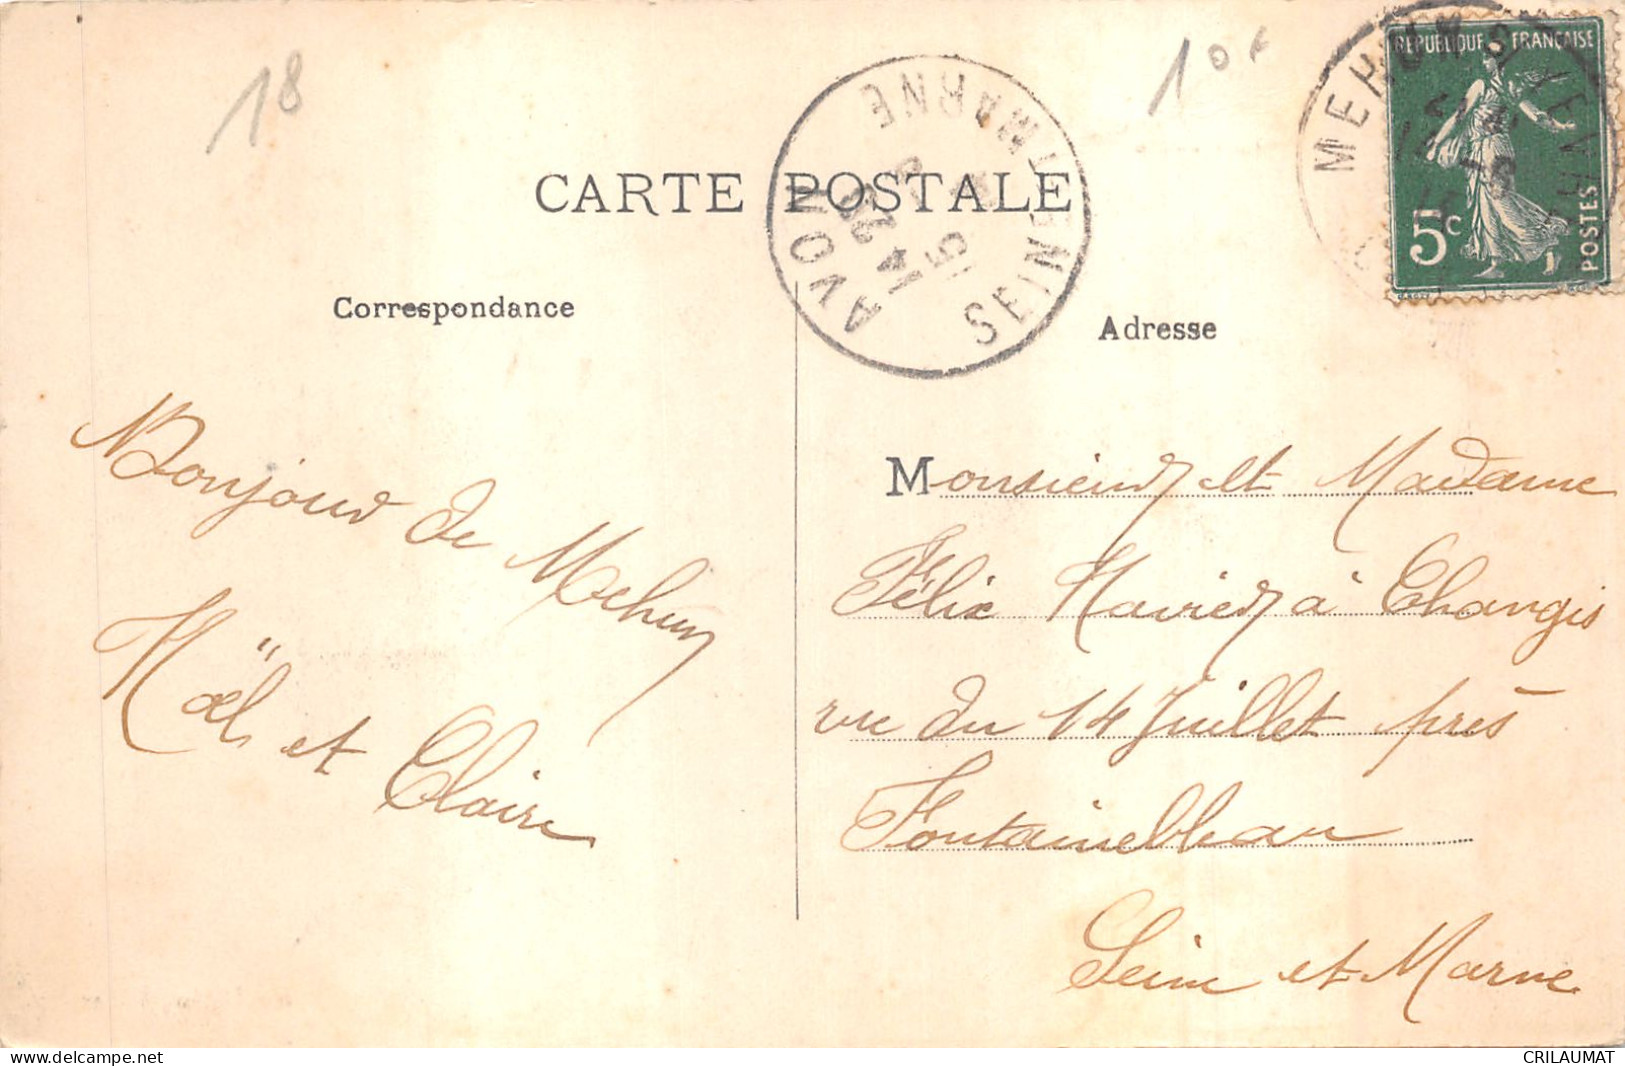 18
10F
CARTE POSTALE
AVON
SEINE ET MARNE
MEHUN S YEVRE
REPUBLIQUE FRANÇAISE
5c
POSTES
Correspondance
Adresse
Bonjour de Mehun
Noël et Claire
Monsieur et Madame
Félix à Changis
rue du 14 Juillet près
Fontainebleau
Seine et Marne
delcampe.net
CRILAUMAT